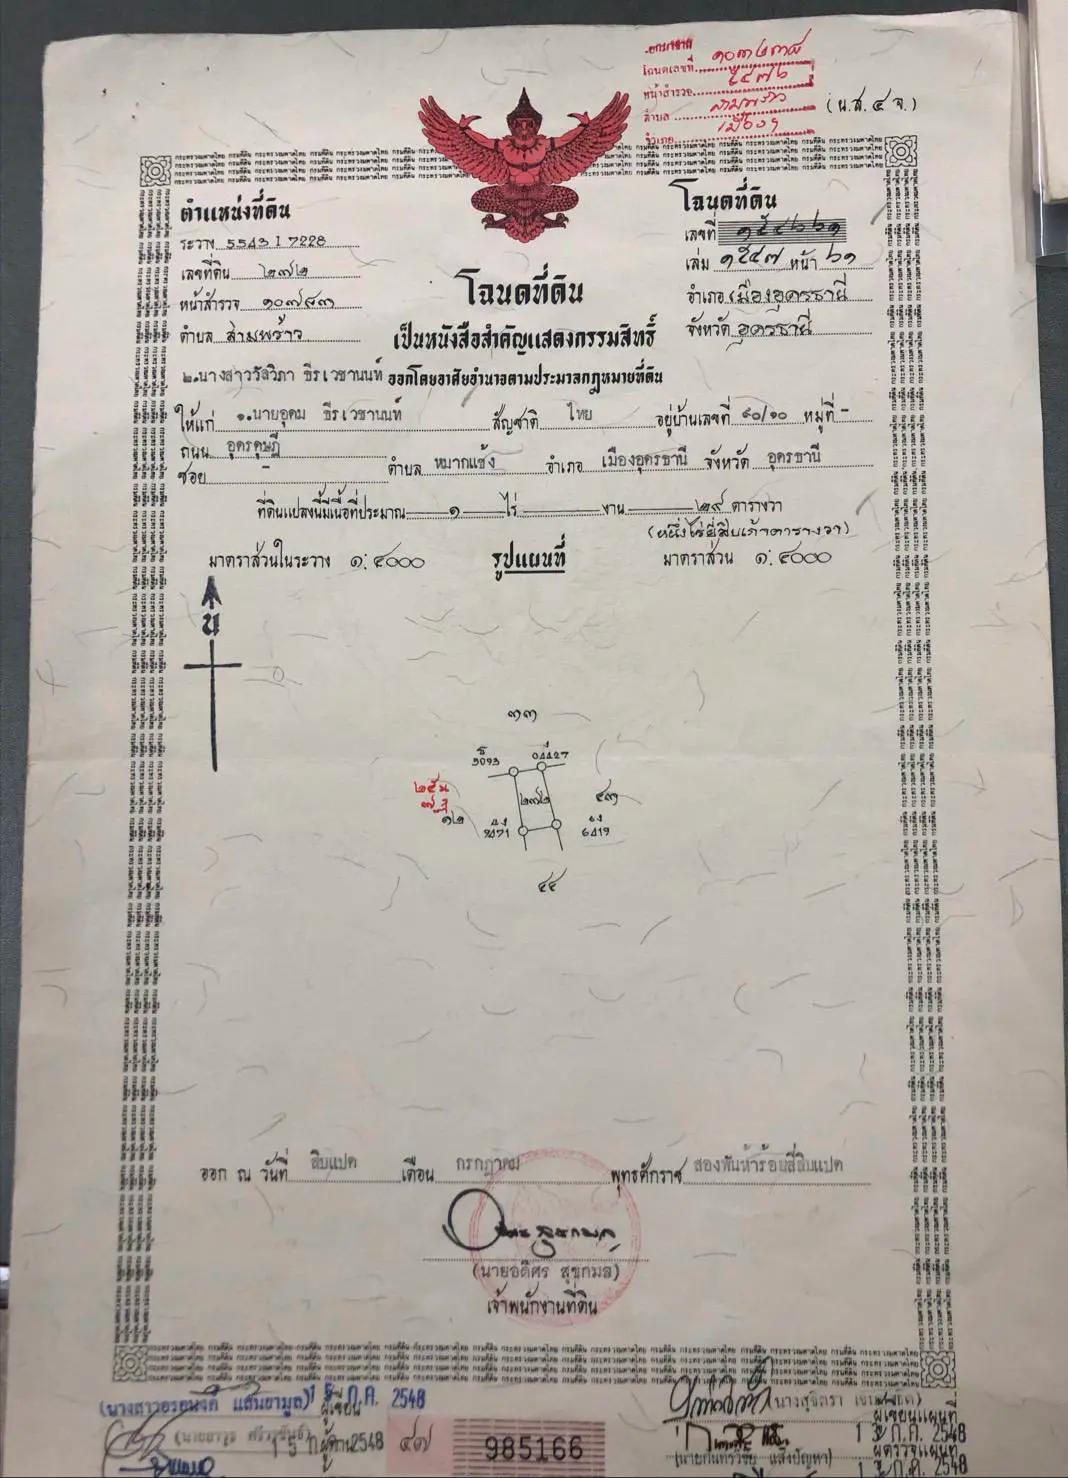 โฉนดเลขที่ ๑๐๓๒๓๘
หน้าสำรวจ ๕๔๗๖
ตำบล สามพร้าว
อำเภอ เมืองฯ
(น.ส. ๔ จ.)
ตำแหน่งที่ดิน
ระวาง 5543 I 7228
เลขที่ดิน ๒๗๒
หน้าสำรวจ ๑๐๗๘๓
ตำบล สามพร้าว
โฉนดที่ดิน
เลขที่ ๑๕๔๖๖๑
เล่ม ๑๕๔๗ หน้า ๖๑
อำเภอ เมืองอุดรธานี
จังหวัด อุดรธานี
โฉนดที่ดิน
เป็นหนังสือสำคัญแสดงกรรมสิทธิ์
๒.นางสาววัลวิภา ธีรเวชานนท์ ออกโดยอาศัยอำนาจตามประมวลกฎหมายที่ดิน
ให้แก่ ๑.นายอุดม ธีรเวชานนท์ สัญชาติ ไทย อยู่บ้านเลขที่ ๙๐/๑๐ หมู่ที่ -
ถนน อุดรดุษฎี
ซอย - ตำบล หมากแข้ง อำเภอ เมืองอุดรธานี จังหวัด อุดรธานี
ที่ดินแปลงนี้มีเนื้อที่ประมาณ ๑ ไร่ งาน ๒๙ ตารางวา
(หนึ่งไร่ยี่สิบเก้าตารางวา)
มาตราส่วนในระวาง ๑:๔๐๐๐ รูปแผนที่ มาตราส่วน ๑:๔๐๐๐
น
๓๓
3093 04427
๒๗๒
๔๓
๑๒
9471 6419
๔๔
ออก ณ วันที่ สิบแปด เดือน กรกฎาคม พุทธศักราช สองพันห้าร้อยสี่สิบแปด
(นายอดิศร สุขกมล)
เจ้าพนักงานที่ดิน
ก.ค. 2548
ผู้เขียน
1 5 ก.ค. 2548
๔๗
985166
ผู้เขียนแผนที่
1 3 ก.ค. 2548
ผู้ตรวจแผนที่
1 3 ก.ค. 2548